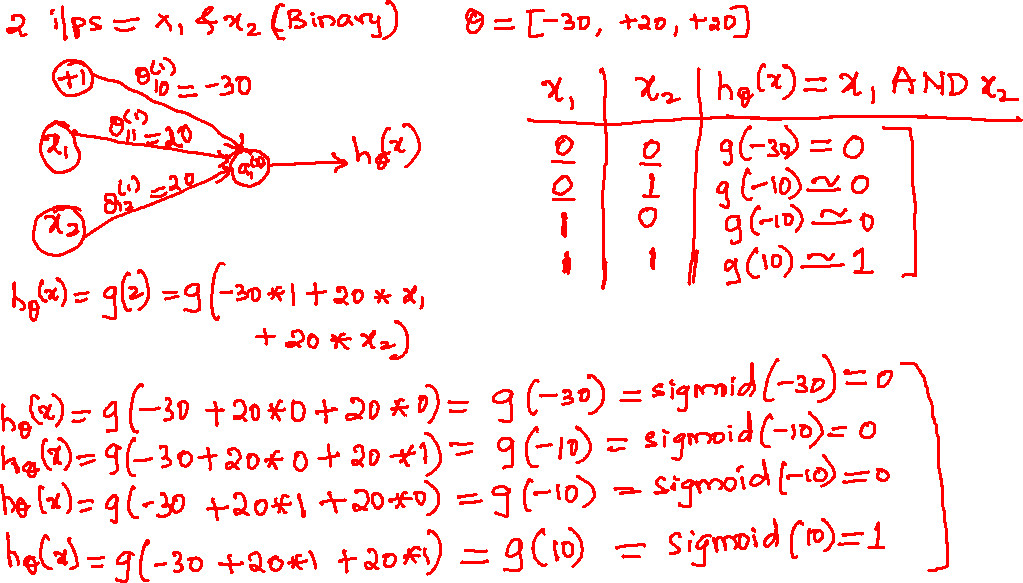 2 i/ps = x₁ & x₂ (Binary)   θ = [-30, +20, +20]
+1   θ₁₀⁽¹⁾ = -30
x₁   θ₁₁⁽¹⁾ = 20   → h_θ(x)
x₂   θ₁₂⁽¹⁾ = 20
x₁ | x₂ | h_θ(x) = x₁ AND x₂
0 | 0 | g(-30) = 0
0 | 1 | g(-10) ≃ 0
1 | 0 | g(-10) ≃ 0
1 | 1 | g(10) ≃ 1
h_θ(x) = g(z) = g(-30 * 1 + 20 * x₁
+ 20 * x₂)
h_θ(x) = g(-30 + 20*0 + 20*0) = g(-30) = sigmoid(-30) = 0
h_θ(x) = g(-30 + 20*0 + 20*1) = g(-10) = sigmoid(-10) = 0
h_θ(x) = g(-30 + 20*1 + 20*0) = g(-10) = sigmoid(-10) = 0
h_θ(x) = g(-30 + 20*1 + 20*1) = g(10) = sigmoid(10) = 1